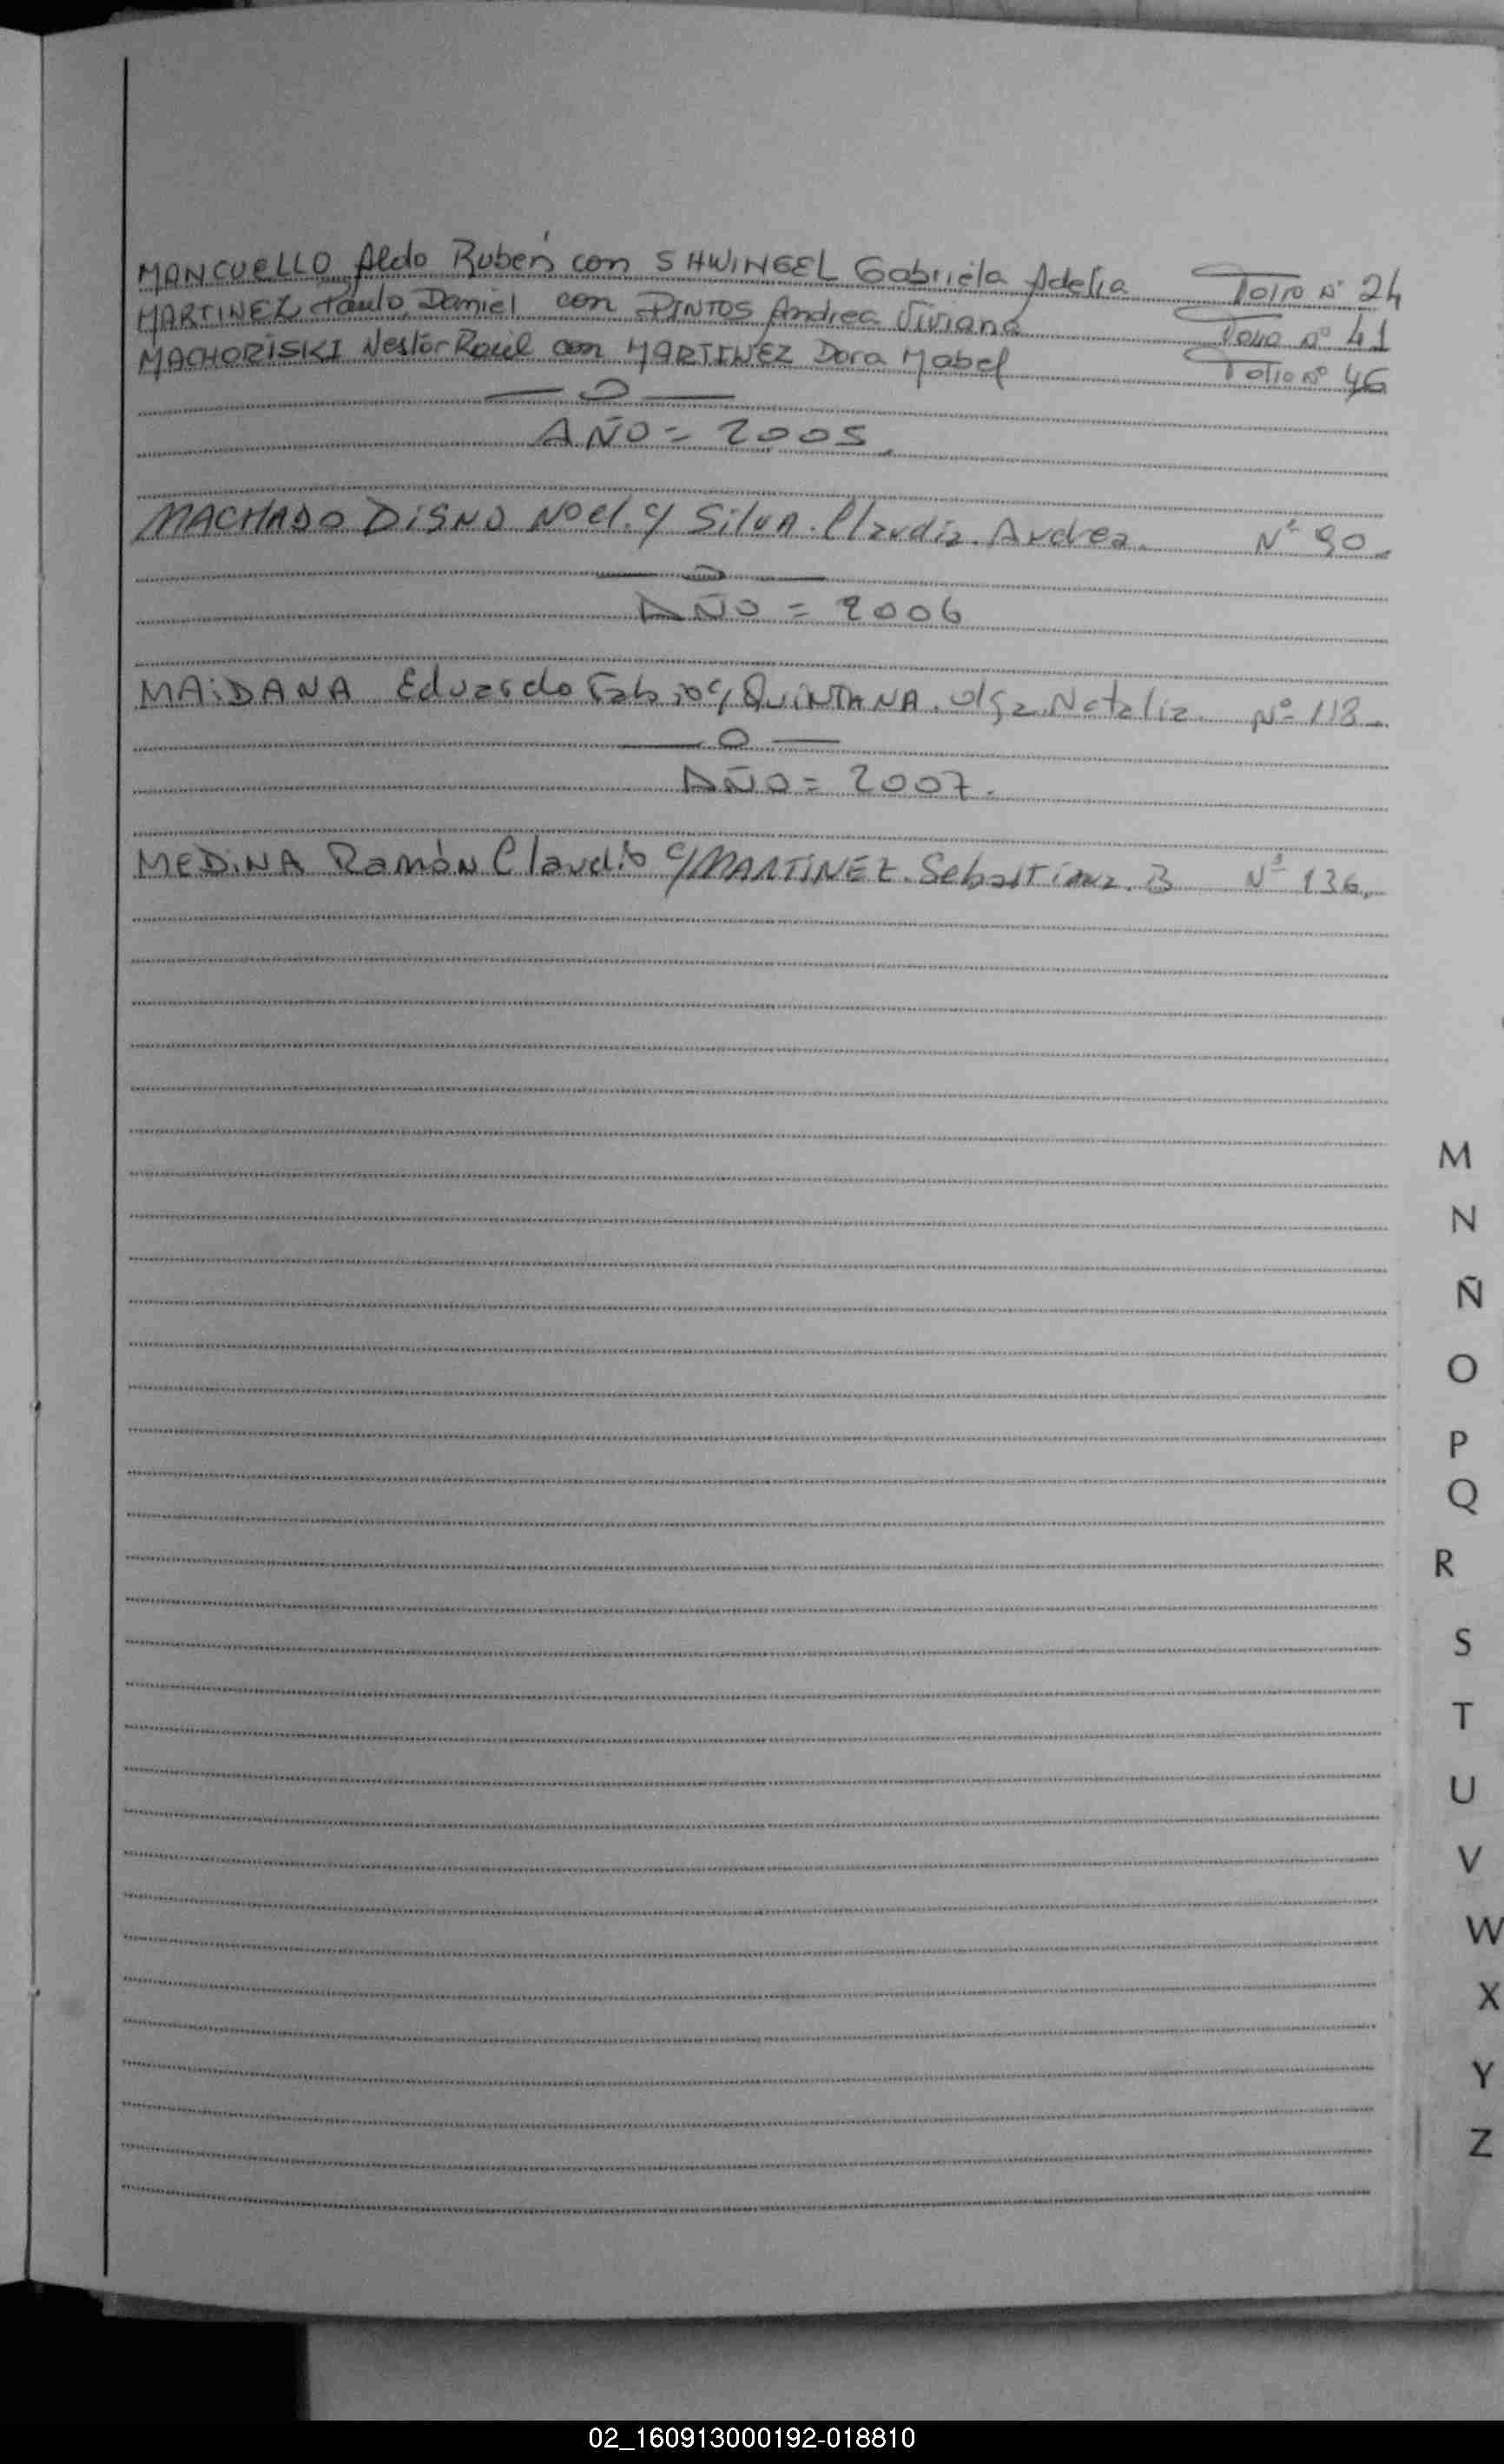 MANCUELLO Aldo Rubén con SHWINGEL Gabriela Adelia Folio Nº 24
MARTINEZ Paulo Daniel con PINTOS Andrea Viviana Folio Nº 41
MACHORISKI Nestor Raúl con MARTINEZ Dora Mabel Folio Nº 46
— O —
AÑO = 2005
MACHADO Disno Noel. c/ Silva. Claudia. Andrea. Nº 90
— O —
AÑO = 2006
MAiDANA Eduardo Fabio c/ QUiNTANA. Olga. Natalia. Nº 118
— O —
AÑO = 2007.
MEDiNA Ramón Claudio c/ MARTINEZ. Sebastiana. B Nº 136
M
N
Ñ
O
P
Q
R
S
T
U
V
W
X
Y
Z
02_160913000192-018810